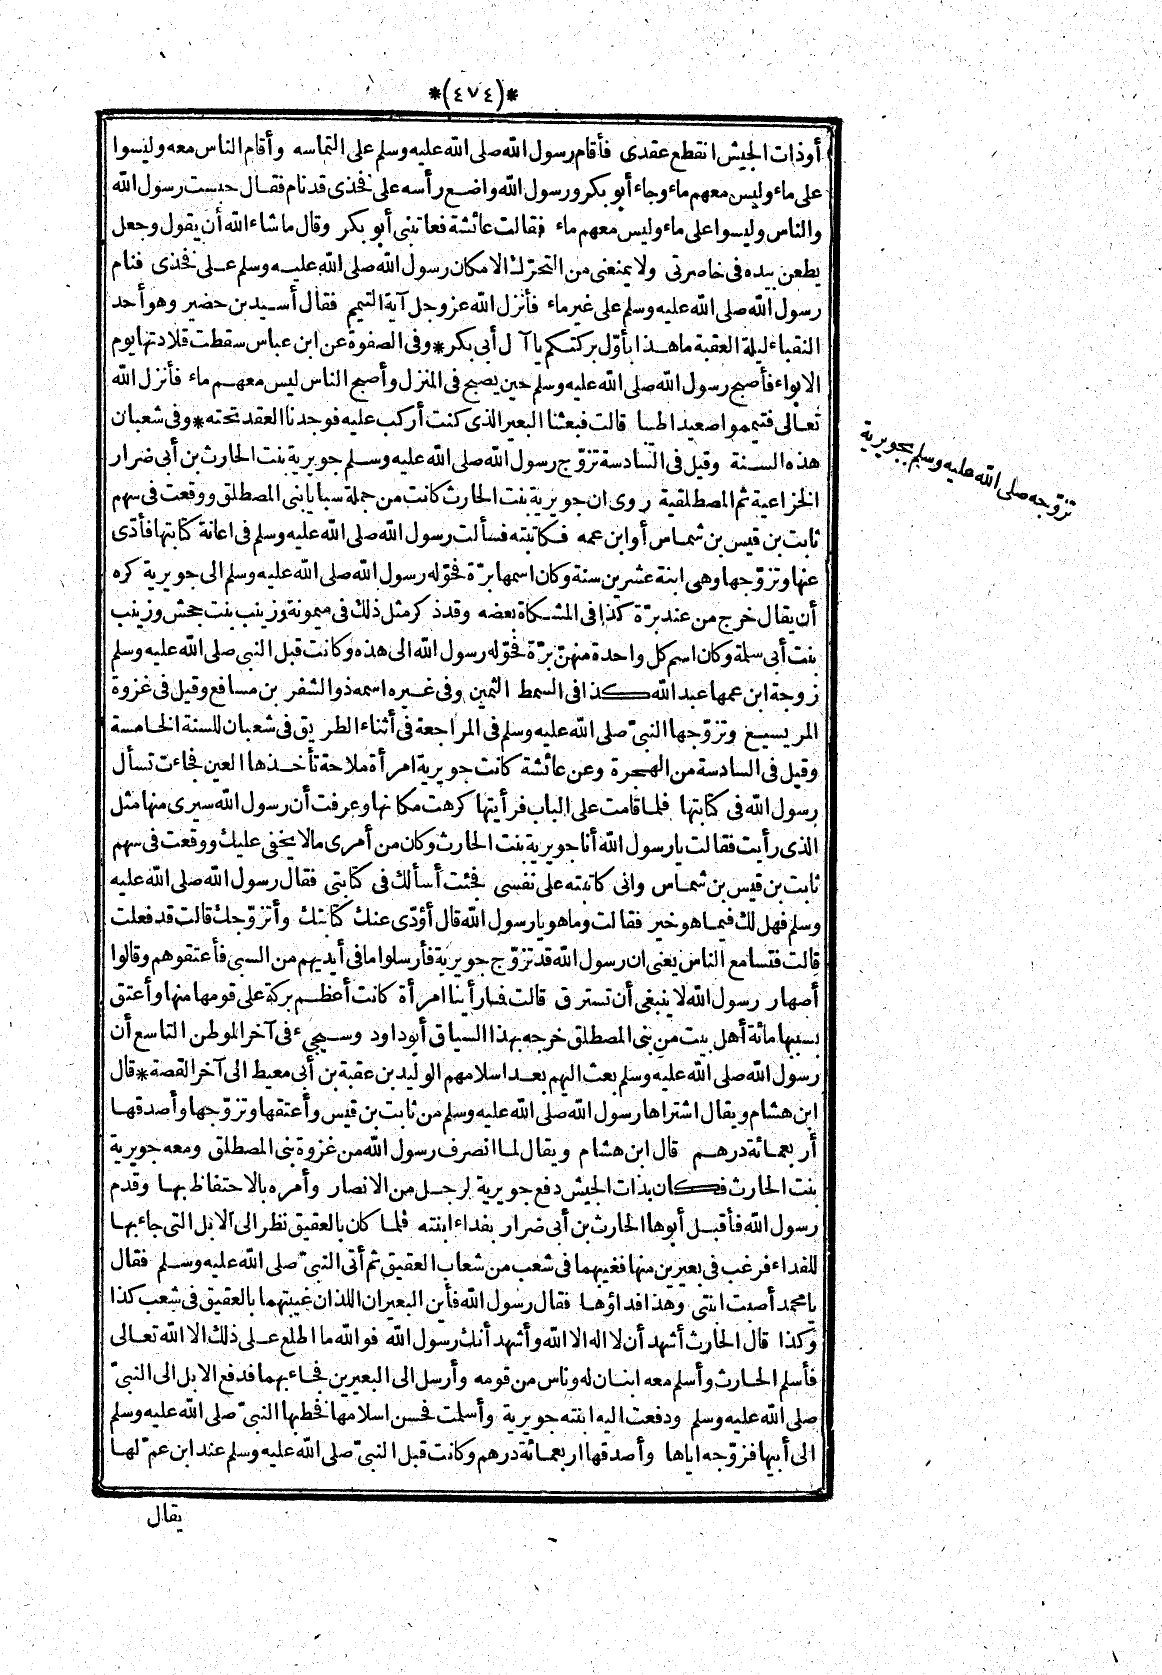 *(٤٧٤)*
أوذات الجيش انقطع عقدى فأقام رسول الله صلى الله عليه وسلم على التماسه وأقام الناس معه وليسوا
على ماء وليس معهم ماء وجاء أبو بكر ورسول الله واضع رأسه على فخذى قد نام فقال حبست رسول الله
والناس وليسوا على ماء وليس معهم ماء فقالت عائشة فعاتبنى أبو بكر وقال ما شاء الله أن يقول وجعل
يطعن بيده فى خاصرتى ولا يمنعنى من التحرّك الا مكان رسول الله صلى الله عليه وسلم على فخذى فنام
رسول الله صلى الله عليه وسلم على غير ماء فأنزل الله عز وجل آية التيمم فقال أسيد بن حضير وهو أحد
النقباء ليلة العقبة ما هذا بأوّل بركتكم يا آل أبى بكر * وفى الصفوة عن ابن عباس سقطت قلادتها يوم
الابواء فأصبح رسول الله صلى الله عليه وسلم حين يصبح فى المنزل وأصبح الناس ليس معهم ماء فأنزل الله
تعالى فتيمموا صعيدا طيبا قالت فبعثنا البعير الذى كنت أركب عليه فوجدنا العقد تحته * وفى شعبان
هذه السنة وقيل فى السادسة تزوّج رسول الله صلى الله عليه وسلم جويرية بنت الحارث بن أبى ضرار
تزوّجه صلى الله عليه وسلم بجويرية
الخزاعية ثم المصطلقية روى ان جويرية بنت الحارث كانت من جملة سبايا بنى المصطلق ووقعت فى سهم
ثابت بن قيس بن شماس أو ابن عمه فكاتبته فسألت رسول الله صلى الله عليه وسلم فى اعانة كتابتها فأدّى
عنها وتزوّجها وهى ابنة عشرين سنة وكان اسمها برّة فحوّله رسول الله صلى الله عليه وسلم الى جويرية كره
أن يقال خرج من عند برّة كذا فى المشكاة بعضه وقد ذكر مثل ذلك فى ميمونة وزينب بنت جحش وزينب
بنت أبى سلمة وكان اسم كل واحدة منهنّ برّة فحوّله رسول الله الى هذه وكانت قبل النبى صلى الله عليه وسلم
زوجة ابن عمها عبد الله كذا فى السمط الثمين وفى غيره اسمه ذو الشفر بن مسافع وقيل فى غزوة
المريسيع وتزوّجها النبىّ صلى الله عليه وسلم فى المراجعة فى أثناء الطريق فى شعبان للسنة الخامسة
وقيل فى السادسة من الهجرة وعن عائشة كانت جويرية امرأة ملاحة تأخذها العين فجاءت تسأل
رسول الله فى كتابتها فلما قامت على الباب فرأيتها كرهت مكانها وعرفت أن رسول الله سيرى منها مثل
الذى رأيت فقالت يا رسول الله أنا جويرية بنت الحارث وكان من أمرى ما لا يخفى عليك ووقعت فى سهم
ثابت بن قيس بن شماس وانى كاتبته على نفسى فجئت أسألك فى كتابتى فقال رسول الله صلى الله عليه
وسلم فهل لك فيما هو خير فقالت وما هو يا رسول الله قال أؤدّى عنك كتابتك وأتزوّجك قالت قد فعلت
قالت فتسامع الناس يعنى ان رسول الله قد تزوّج جويرية فأرسلوا ما فى أيديهم من السبى فأعتقوهم وقالوا
أصهار رسول الله لا ينبغى أن تسترق قالت فما رأينا امرأة كانت أعظم بركة على قومها منها وأعتق
بسببها مائة أهل بيت من بنى المصطلق خرجه بهذا السياق أبو داود وسيجىء فى آخر الموطن التاسع أن
رسول الله صلى الله عليه وسلم بعث اليهم بعد اسلامهم الوليد بن عقبة بن أبى معيط الى آخر القصة * قال
ابن هشام ويقال اشتراها رسول الله صلى الله عليه وسلم من ثابت بن قيس وأعتقها وتزوّجها وأصدقها
أربعمائة درهم قال ابن هشام ويقال لما انصرف رسول الله من غزوة بنى المصطلق ومعه جويرية
بنت الحارث فكان بذات الجيش دفع جويرية لرجل من الانصار وأمره بالاحتفاظ بها وقدم
رسول الله فأقبل أبوها الحارث بن أبى ضرار بفداء ابنته فلما كان بالعقيق نظر الى الابل التى جاء بها
للفداء فرغب فى بعيرين منها فغيبهما فى شعب من شعاب العقيق ثم أتى النبىّ صلى الله عليه وسلم فقال
يا محمد أصبت ابنتى وهذا فداؤها فقال رسول الله فأين البعيران اللذان غيبتهما بالعقيق فى شعب كذا
وكذا قال الحارث أشهد أن لا اله الا الله وأشهد أنك رسول الله فوالله ما اطلع على ذلك الا الله تعالى
فأسلم الحارث وأسلم معه ابنان له وناس من قومه وأرسل الى البعيرين فجاء بهما فدفع الابل الى النبىّ
صلى الله عليه وسلم ودفعت اليه ابنته جويرية وأسلمت فحسن اسلامها فخطبها النبىّ صلى الله عليه وسلم
الى أبيها فزوّجه اياها وأصدقها اربعمائة درهم وكانت قبل النبىّ صلى الله عليه وسلم عند ابن عمّ لها
يقال